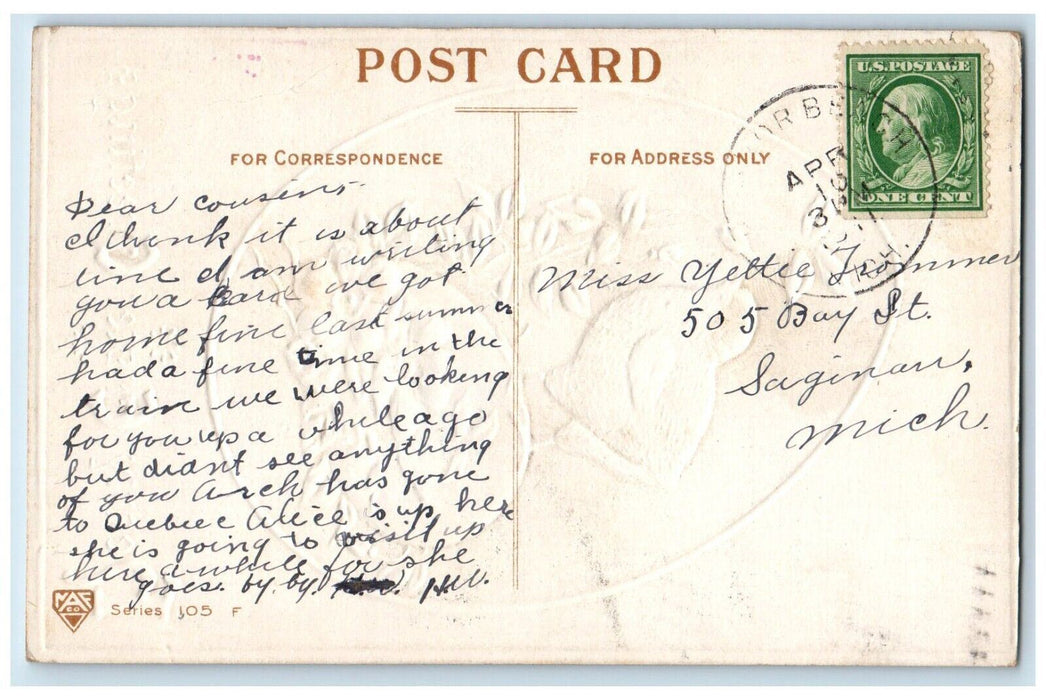 POST CARD
FOR CORRESPONDENCE
FOR ADDRESS ONLY
U.S. POSTAGE
ONE CENT
OR BEACH
APR
10
3 PM
MICH.
Dear cousens
I think it is about
time I am writing
you a card we got
home fine last summer
had a fine time in the
train we were looking
for you up a while ago
but didnt see anything
of you Arch has gone
to Quebec Alice is up here
she is going to visit up
here a while for she
goes. by. by. H.W.
Miss Yettie Trommer
505 Bay St.
Saginaw,
Mich.
Series 105 F